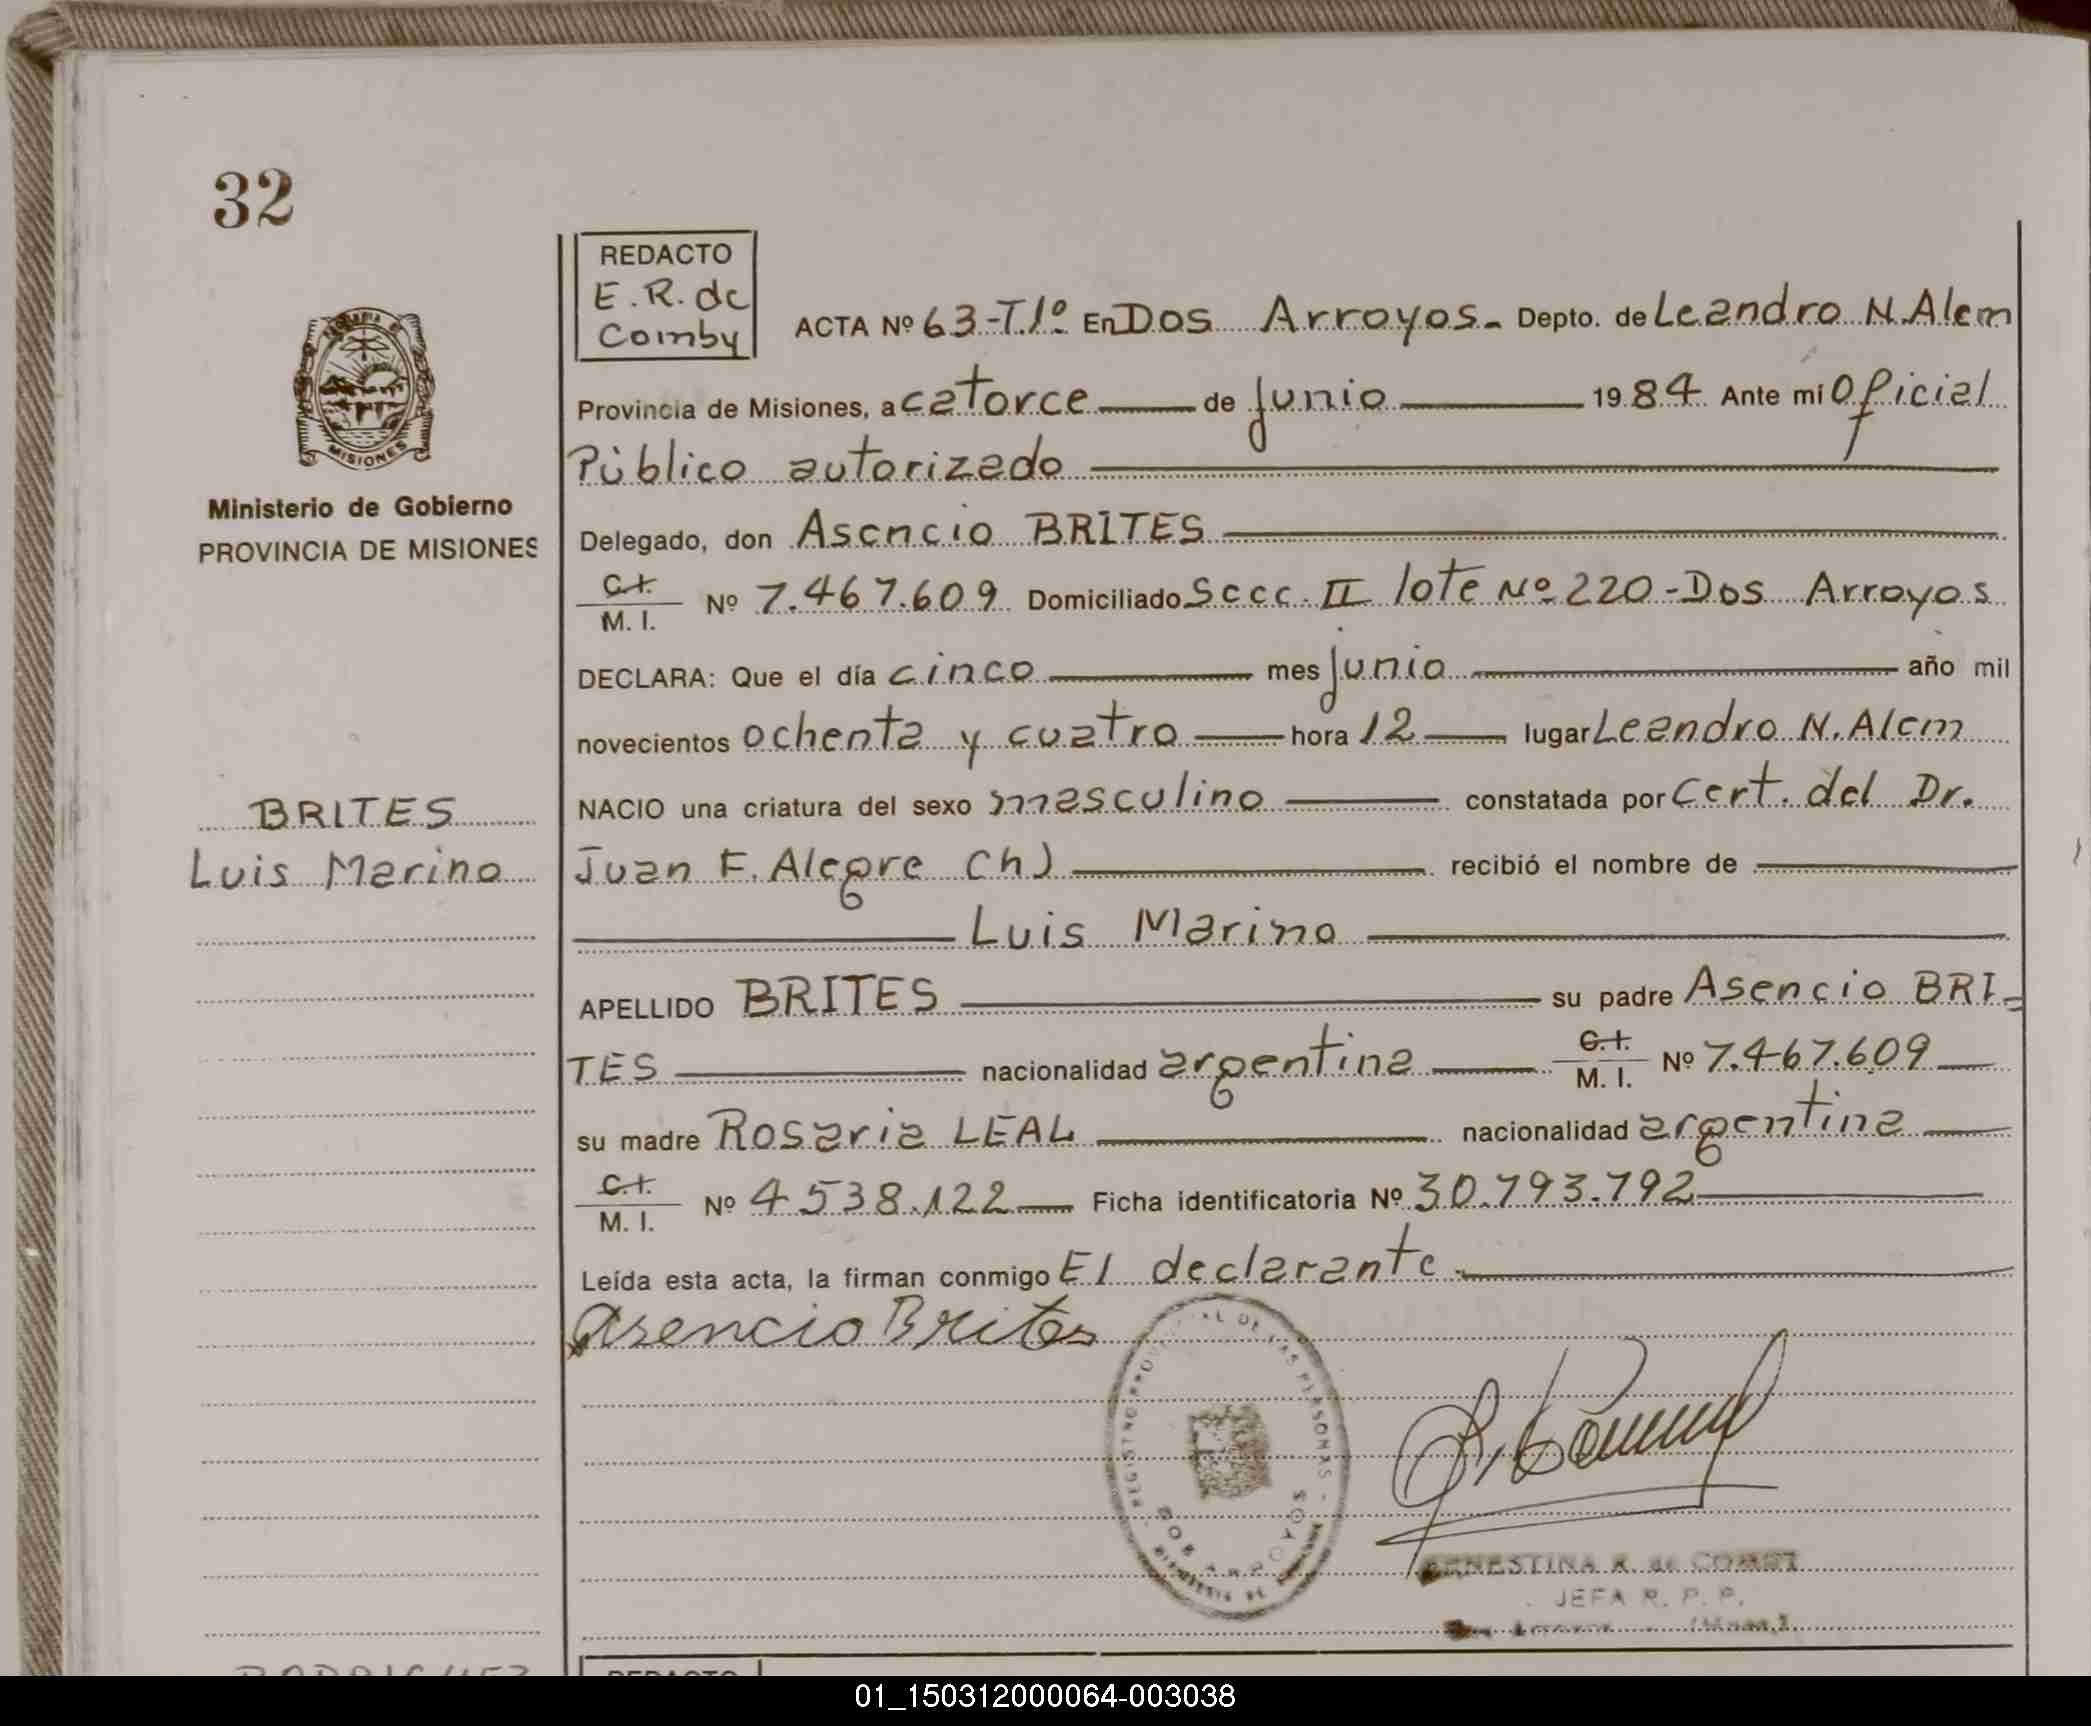 32
REDACTO
E.R. de
Comby
ACTA Nº 63-T.1º En Dos Arroyos.- Depto. de Leandro N. Alem
Provincia de Misiones, a catorce de junio 1984 Ante mí Oficial
Público autorizado
Delegado, don Asencio BRITES
C.I.
M. I. Nº 7.467.609 Domiciliado Secc. II lote Nº 220-Dos Arroyos
DECLARA: Que el día cinco mes junio año mil
novecientos ochenta y cuatro hora 12 lugar Leandro N. Alem
NACIO una criatura del sexo masculino constatada por Cert. del Dr.
Juan F. Alegre (h) recibió el nombre de
Luis Marino
APELLIDO BRITES su padre Asencio BRI-
TES nacionalidad argentina C.I. M. I. Nº 7.467.609
su madre Rosaria LEAL nacionalidad argentina
C.I.
M. I. Nº 4538.122 Ficha identificatoria Nº 30.793.792
Leída esta acta, la firman conmigo El declarante
Asencio Brites
MISIONES
Ministerio de Gobierno
PROVINCIA DE MISIONES
BRITES
Luis Marino
DE LAS PERSONAS
DOS ARROYOS
ERNESTINA R. de COMBY
JEFA R. P. P.
RODRIGUEZ
REDACTO
01_150312000064-003038